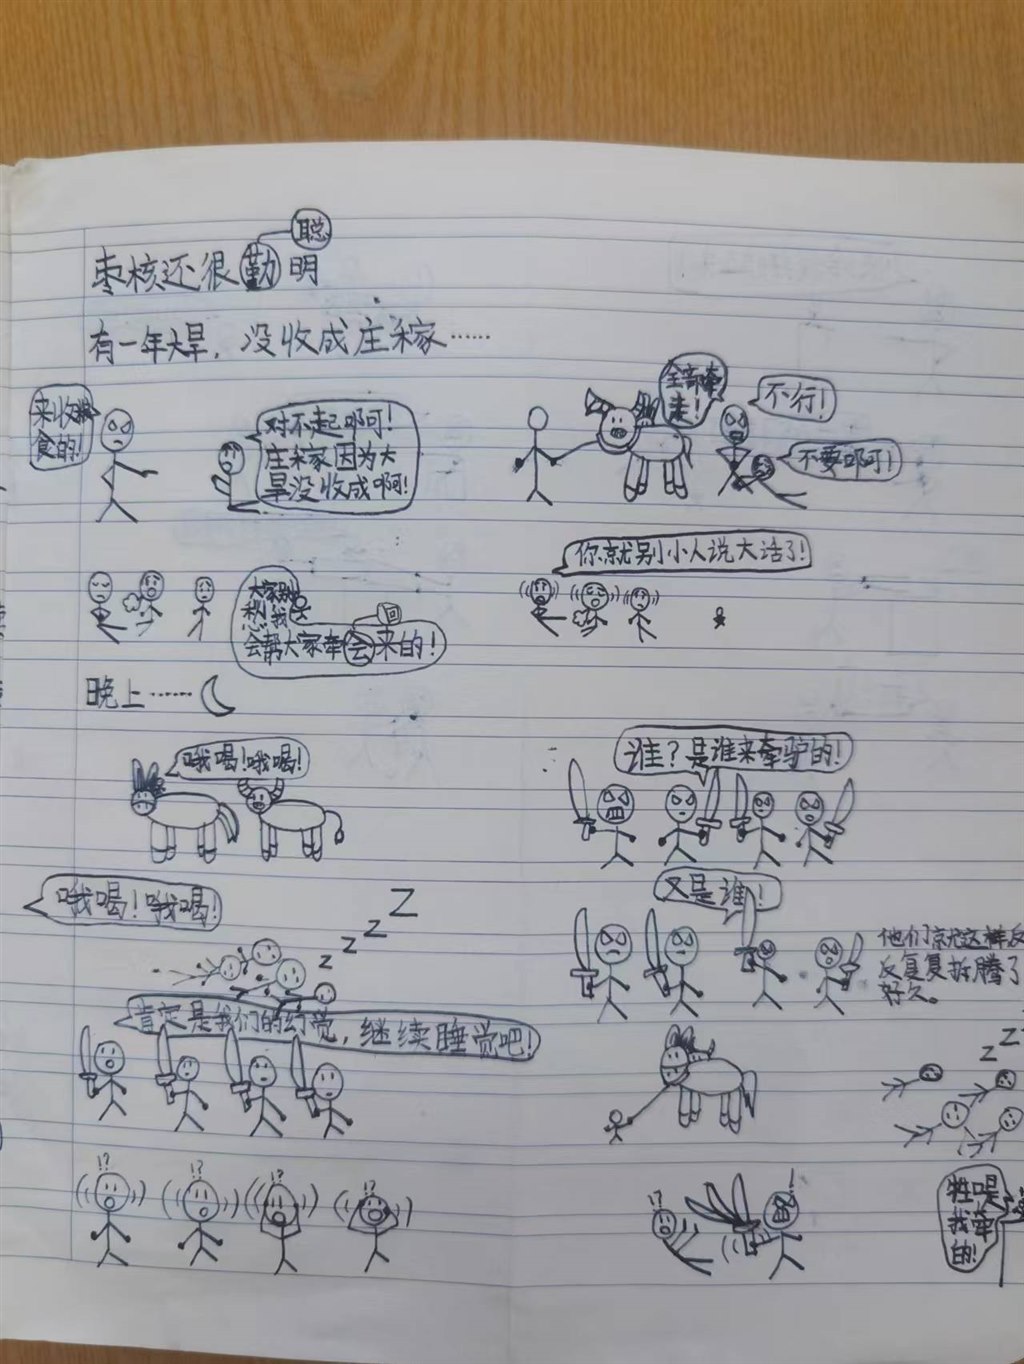 聪
枣核还很勤明
有一年大旱，没收成庄稼……
来收粮
食的！
对不起啊！
庄稼因为大
旱没收成啊！
全部牵
走！
不行！
不要啊！
大家别
愁！我
回
会帮大家牵会来的！
你就别小人说大话了！
晚上……
哦喝！哦喝！
谁？是谁来牵驴的！
哦喝！哦喝！
z z z Z
又是谁！
他们就这样反
反复复折腾了
好久。
肯定是我们的幻觉，继续睡觉吧！
z Z
!? !? !? !?
!? !
牲 是
我牵
的！